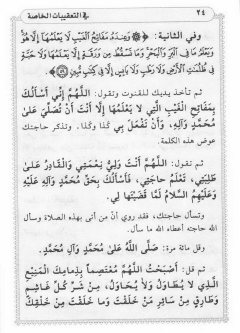 ٢٤
في التعقيبات الخاصة
وفي الثانية: ﴿وَعِندَهُ مَفَاتِحُ الْغَيْبِ لَا يَعْلَمُهَا إِلَّا هُوَ
وَيَعْلَمُ مَا فِي الْبَرِّ وَالْبَحْرِ وَمَا تَسْقُطُ مِن وَرَقَةٍ إِلَّا يَعْلَمُهَا وَلَا حَبَّةٍ
فِي ظُلُمَاتِ الْأَرْضِ وَلَا رَطْبٍ وَلَا يَابِسٍ إِلَّا فِي كِتَابٍ مُّبِينٍ﴾
ثم تأخذ يديك للقنوت وتقول: اللَّهُمَّ إِنِّي أَسْأَلُكَ
بِمَفَاتِحِ الْغَيْبِ الَّتِي لَا يَعْلَمُهَا إِلَّا أَنْتَ أَنْ تُصَلِّيَ عَلَىٰ
مُحَمَّدٍ وَآلِهِ، وَأَنْ تَفْعَلَ بِي كَذَا وَكَذَا. وتذكر حاجتك
عوض هذه الكلمة.
ثم تقول: اللَّهُمَّ أَنْتَ وَلِيُّ نِعْمَتِي وَالْقَادِرُ عَلَىٰ
طَلِبَتِي، تَعْلَمُ حَاجَتِي، فَأَسْأَلُكَ بِحَقِّ مُحَمَّدٍ وَآلِهِ عَلَيْهِ
وَعَلَيْهِمُ السَّلَامُ لَمَّا قَضَيْتَهَا لِي.
وتسأل حاجتك، فقد روي أنّ من أتى بهذه الصلاة وسأل
الله حاجته أعطاه الله ما سأل.
وقل مائة مرة: صَلَّى اللَّهُ عَلَىٰ مُحَمَّدٍ وَآلِ مُحَمَّدٍ.
ثم قل: أَصْبَحْتُ اللَّهُمَّ مُعْتَصِماً بِذِمَامِكَ الْمَنِيعِ
الَّذِي لَا يُطَاوَلُ وَلَا يُحَاوَلُ، مِنْ شَرِّ كُلِّ غَاشِمٍ
وَطَارِقٍ مِنْ سَائِرِ مَنْ خَلَقْتَ وَمَا خَلَقْتَ مِنْ خَلْقِكَ